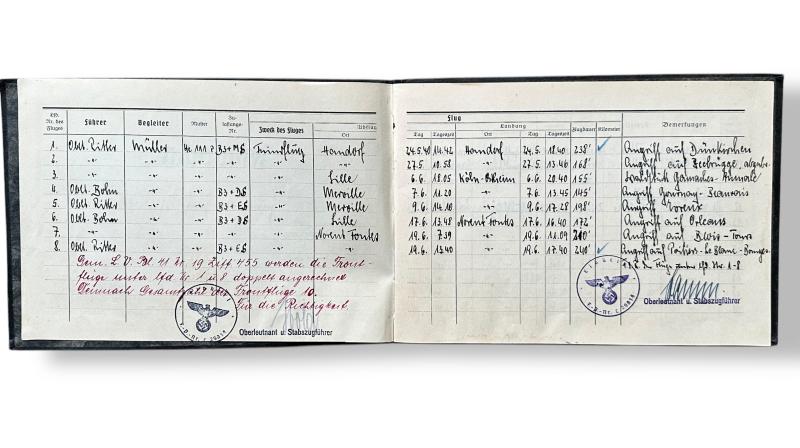 Lfd. Nr. des Fluges Führer Begleiter Muster Zulassungs-Nr. Zweck des Fluges Abflug Ort
1. Oblt. Ritter Müller He 111 B3+MB Frontflug Handorf
2. -"- -"- -"- -"- -"-
3. -"- -"- -"- -"- Lille
4. Oblt. Bohm -"- -"- -"- Merville
5. Oblt. Ritter -"- -"- -"- Merville
6. Oblt. Bohm -"- -"- -"- Lille
7. -"- -"- -"- -"- Norent Fontes
8. Oblt. Ritter -"- -"- -"-
Gem. L.V. Bl 41 Nr. 19 Ziff 455 werden die Front-
flüge unter lfd. Nr. 1 u. 8 doppelt angerechnet
Demnach Gesamtzahl der Frontflüge 10.
Für die Richtigkeit.
Oberleutnant u. Stabszugführer
Flug
Landung
Tag Tageszeit Ort Tag Tageszeit Flugdauer Kilometer Bemerkungen
24.5.40 14.42 Handorf 24.5. 18.40 238' Angriff auf Dünkirchen
27.5. 10.58 -"- 27.5. 13.46 168' Angriff auf Seebrügge
6.6. 18.05 Köln-Ostheim 6.6. 20.40 155'
7.6. 11.20 -"- 7.6. 13.45 145' Angriff Gournay-Beauvais
9.6. 14.10 -"- 9.6. 17.28 198' Angriff
17.6. 13.48 Norent Fontes 17.6. 16.40 172' Angriff auf Orleans
19.6. 7.39 -"- 19.6. 11.09 210' Angriff auf Blois-Tours
19.6. 13.40 -"- 19.6. 17.40 240' Angriff auf Poitiers-Le Blanc-Bourges
Nr. 1-8
Oberleutnant u. Stabszugführer